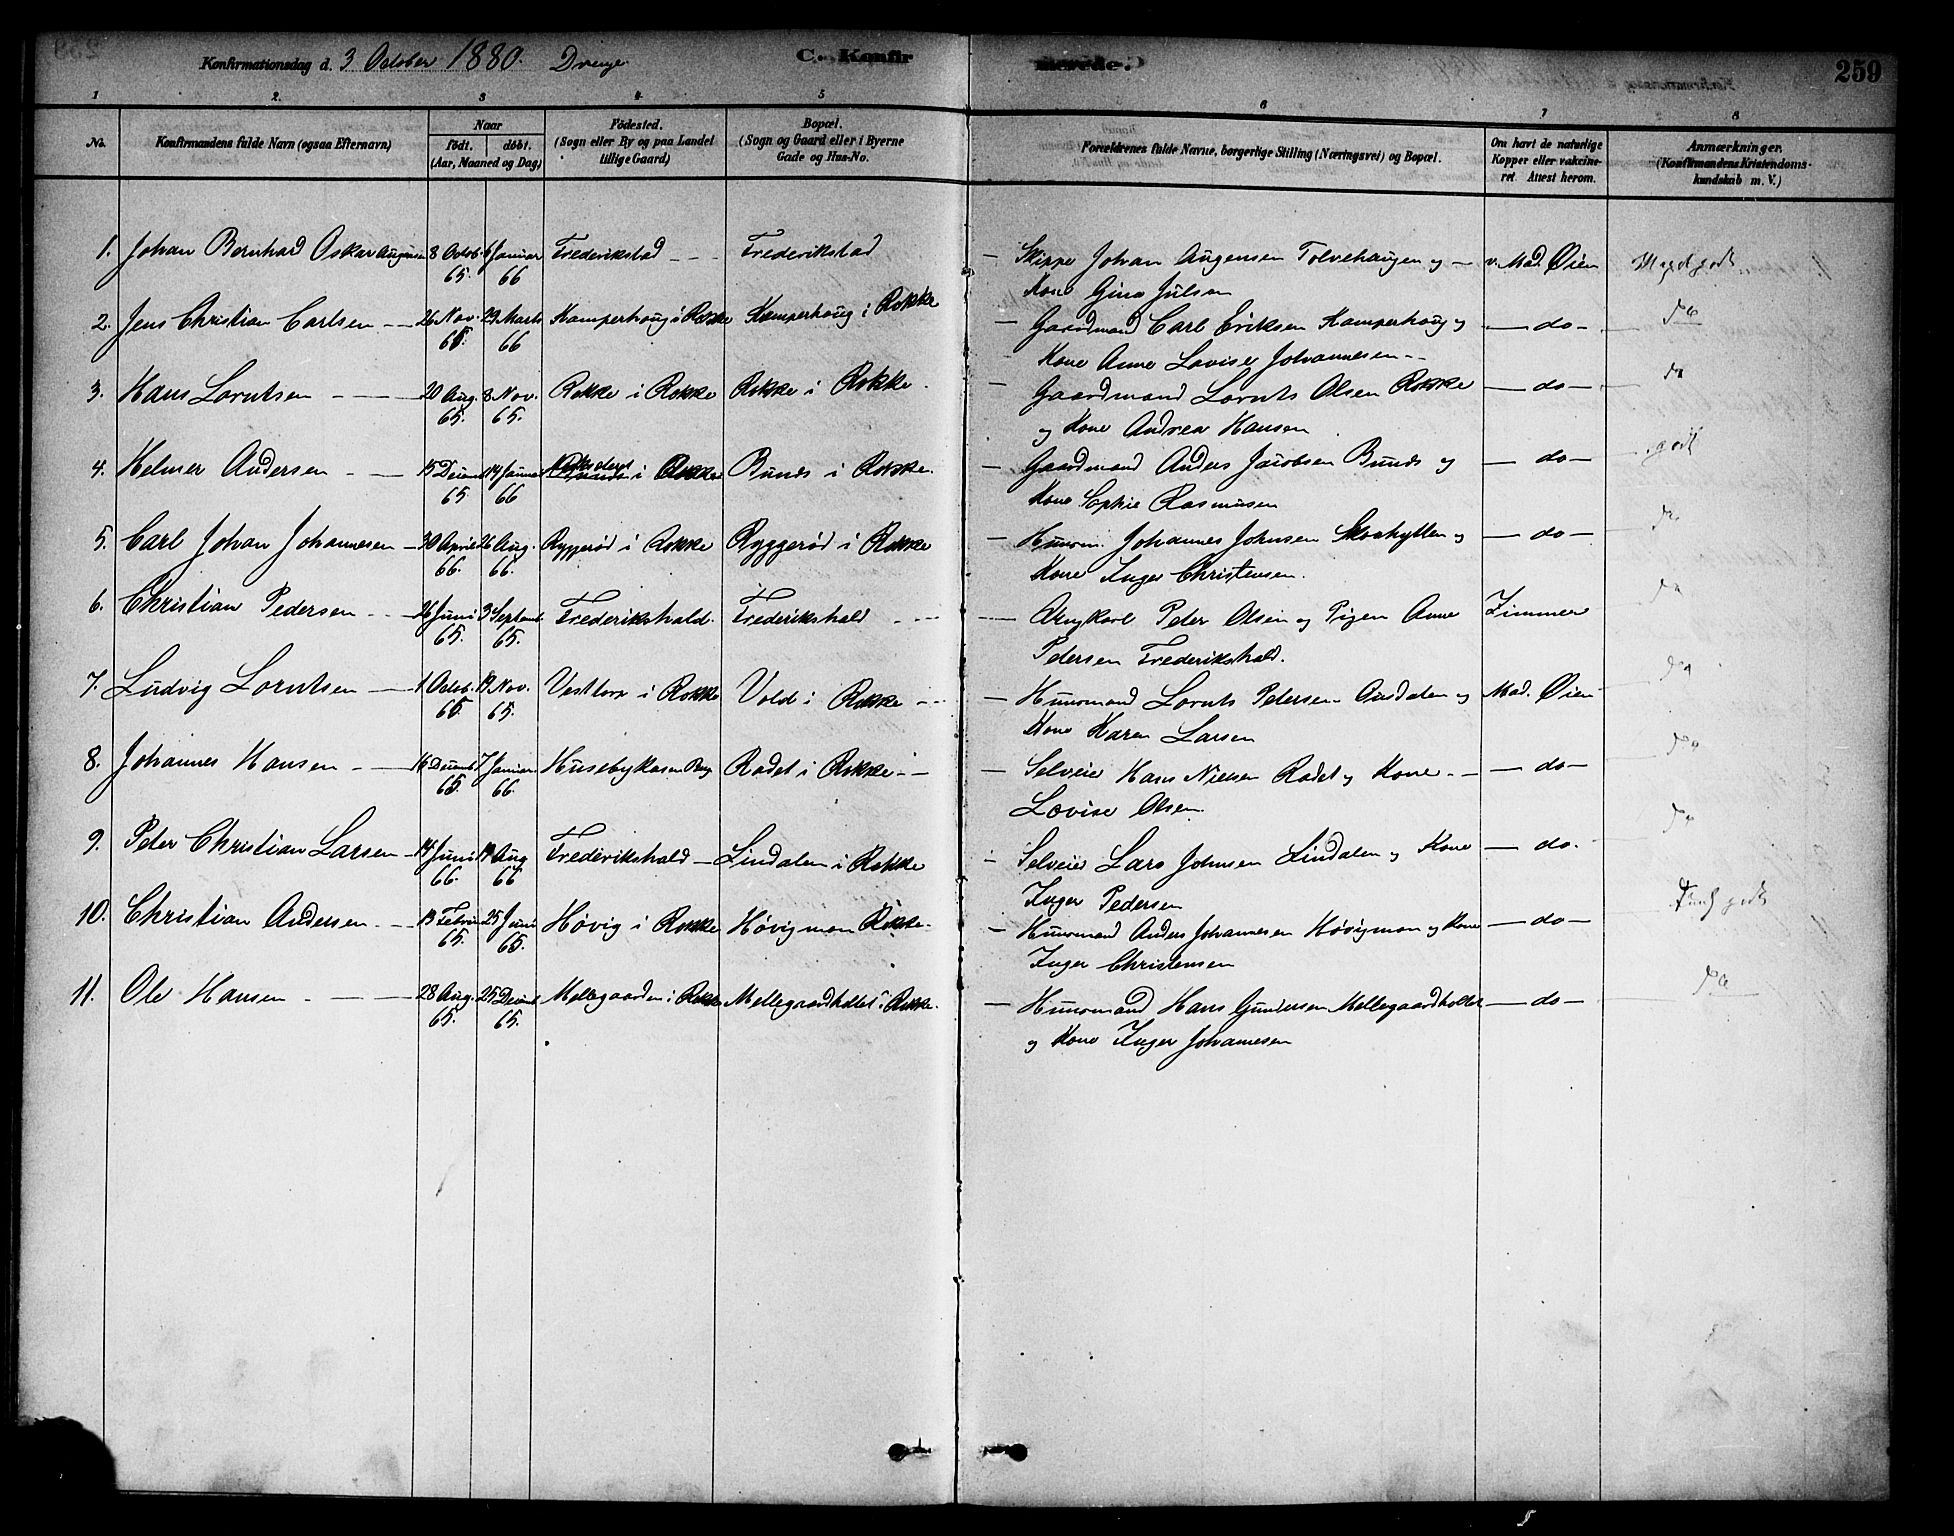 Konfirmationsdag d. 3 October 1880. Drenge. C. Konfirmerede. 259
1 2. 3 4. 5 6 7 8
No. Konfirmandens fulde Navn (ogsaa Efternavn) Naar födt. döbt. (Aar, Maaned og Dag) Födested. (Sogn eller By og paa Landet tillige Gaard) Bopæl. (Sogn og Gaard eller i Byerne Gade og Hus-No. Forældrenes fulde Navne, borgerlige Stilling (Næringsvei) og Bopæl. Om havt de naturlige Kopper eller vakcineret Attest herom. Anmærkninger. (Konfirmandens Kristendomskundskab m. V.)
1. Johan Bernhard Oskar Augensen 8 Octob. 65. 6 Januar 66 Frederikstad - - Frederikstad — Skipper Johan Augensen Tolvehaugen og — v. Mad. Øien Meget godt
Kone Gina Julsen
2. Jens Christian Carlsen — 26 Nov. 65. 29 Marts 66 Kamperhoug i Rokke Kamperhoug i Rokke — Gaardmand Carl Eriksen Kamperhoug og — do — do
Kone Anne Lovise Johannesen
3. Hans Lorntsen — 20 Aug. 65. 8 Nov. 65. Rokke i Rokke Rokke i Rokke. — Gaardmand Lornts Olsen Rokke — do — do
og Kone Andrea Hansen
4. Helmer Andersen — 15 Decemb 65 14 Januar 66 i Rokke Bunds i Rokke. — Gaardmand Anders Jacobsen Bunds og — do — godt
Kone Sophie Rasmusen
5. Carl Johan Johannesen — 30 April 66. 26 Aug. 66. Ryggerød i Rokke Ryggerød i Rokke — Huusm. Johannes Johnsen Skovhytten og — do — do
Kone Inger Christensen.
6. Christian Pedersen - - 26 Juni 65. 3 Septemb. 65. Frederikshald. Frederikshald - - — Ungkarl Peter Olsen og Pigen Anne Zimmer do
Pedersen Frederikshald.
7. Ludvig Lorntsen — 1 Octob. 65 19 Nov. 65. Vesttorp i Rokke Vold i Rokke - - — Huusmand Lornts Petersen Ausdalen og Mad. Øien do
Kone Karen Larsen
8. Johannes Hansen — 16 Decemb. 65. 7 Januar 66. Husebykasen Berg Rødet i Rokke - — Selveier Hans Nielsen Rødet og Kone — do — do
Lovise Olsen.
9. Peter Christian Larsen — 14 Juni 66. 19 Aug 66 Frederikshald — Lindalen i Rokke — Selveier Lars Johnsen Lindalen og Kone — do. do
Inger Pedersen
10. Christian Andersen - - 19 Februar 65. 25 Juni 65. Høvig i Rokke Høvigmon Rokke. — Huusmand Anders Johannesen Høvigmon og Kone — do — godt
Inger Christensen
11. Ole Hansen - — 28 Aug. 65. 25 Decemb 65. Mellegaarden i Rokke Mellegaardholtet i Rokke. — Huusmand Hans Gundersen Mellegaardholtet — do — do
og Kone Inger Johannesen